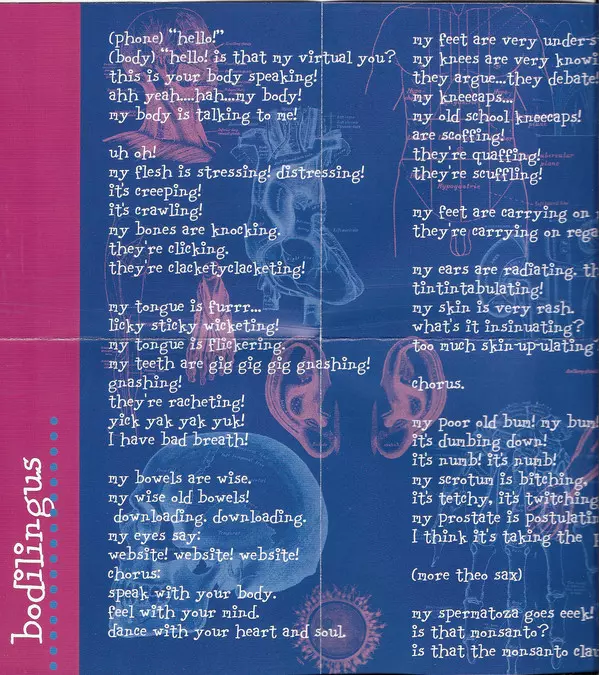 bodilingus
(phone) "hello!"
(body) "hello! is that my virtual you?
this is your body speaking!
ahh yeah....hah...my body!
my body is talking to me!
uh oh!
my flesh is stressing! distressing!
it's creeping!
it's crawling!
my bones are knocking.
they're clicking.
they're clacketyclacketing!
my tongue is furrr...
licky sticky wicketing!
my tongue is flickering.
my teeth are gig gig gig gnashing!
gnashing!
they're racheting!
yick yak yak yuk!
I have bad breath!
my bowels are wise.
my wise old bowels!
downloading. downloading.
my eyes say:
website! website! website!
chorus:
speak with your body.
feel with your mind.
dance with your heart and soul.
my feet are very under-s
my knees are very knowi
they argue...they debate!
my kneecaps...
my old school kneecaps!
are scoffing!
they're quaffing!
they're scuffling!
my feet are carrying on
they're carrying on rega
my ears are radiating. th
tintintabulating!
my skin is very rash.
what's it insinuating?
too much skin-up-ulating
chorus.
my poor old bum! my bum!
it's dumbing down!
it's numb! it's numb!
my scrotum is bitching.
it's tetchy. it's twitching
my prostate is postulatin
I think it's taking the p
(more theo sax)
my spermatoza goes eeek!
is that monsanto?
is that the monsanto cla